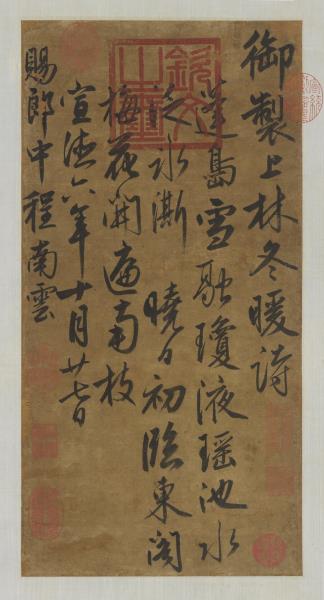 御製上林冬暖詩
蓬島雪融瓊液瑤池水
泛冰澌曉日初臨東閣
梅花開遍南枝
宣德六年十月廿七日
賜郎中程南雲
欽文之璽